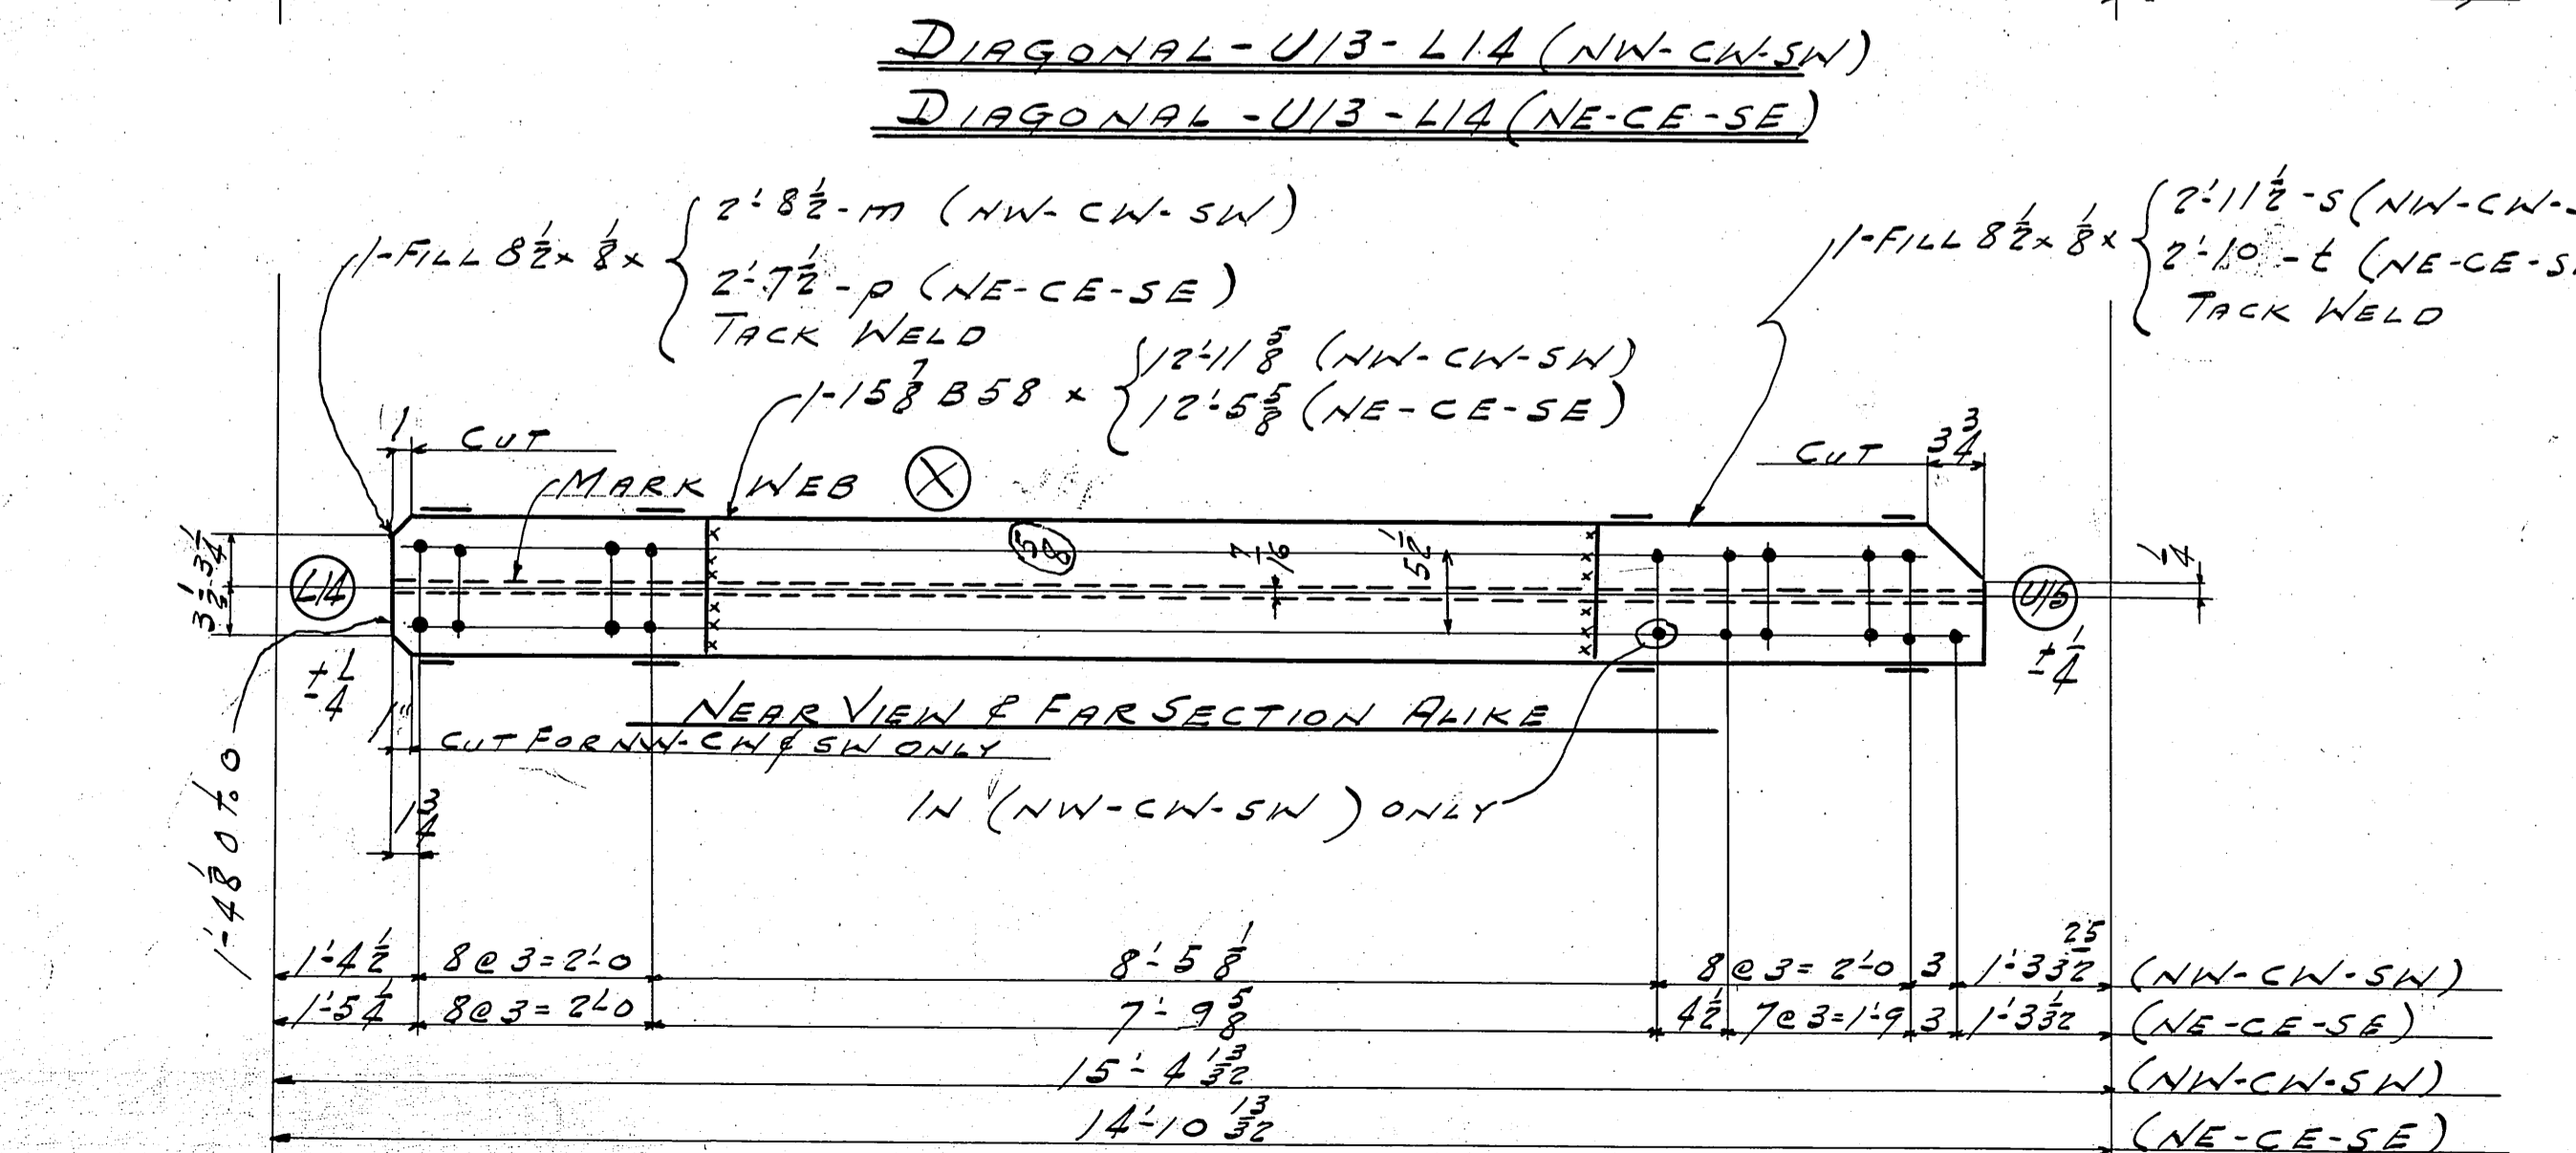 DIAGONAL - U13 - L14 (NW-CW-SW)
DIAGONAL - U13 - L14 (NE-CE-SE)
1-FILL 8 1/2 x 1/8 x
2'-8 1/2 - m (NW-CW-SW)
2'-7 1/2 - p (NE-CE-SE)
TACK WELD
1-FILL 8 1/2 x 1/8 x
2'-11 1/2 - s (NW-CW-S
2'-10 - t (NE-CE-S
TACK WELD
1-15 7/8 B 58 x
12'-11 5/8 (NW-CW-SW)
12'-5 5/8 (NE-CE-SE)
1
CUT
CUT
3 3/4
MARK WEB X
5/8
7/16
5 1/2
3 1/4
3 1/2
L14
± 1/4
U15
± 1/4
1/4
NEAR VIEW & FAR SECTION ALIKE
1"
CUT FOR NW-CW & SW ONLY
IN (NW-CW-SW) ONLY
1 3/4
1'-4 1/8 0 to 0
1'-4 1/2 8 @ 3 = 2'-0 8'-5 1/8 8 @ 3 = 2'-0 3 1'-3 25/32 (NW-CW-SW)
1'-5 1/4 8 @ 3 = 2'-0 7'-9 5/8 4 1/2 7 @ 3 = 1'-9 3 1'-3 1/32 (NE-CE-SE)
15'-4 13/32 (NW-CW-SW)
14'-10 13/32 (NE-CE-SE)